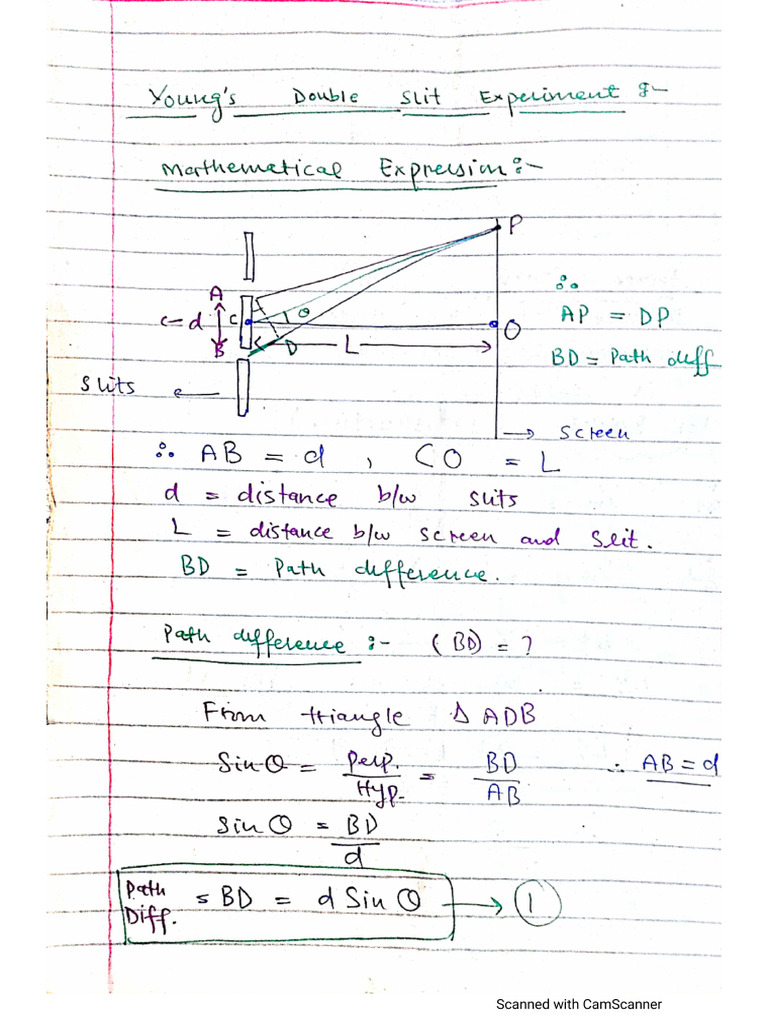 Young's Double Slit Experiment :-
Mathematical Expression :-
P
A
C
θ
← d
B
D
L
O
∴
AP = DP
BD = Path diff
Slits ←
→ Screen
∴ AB = d , CO = L
d = distance b/w slits
L = distance b/w screen and slit.
BD = Path difference.
Path difference :- (BD) = ?
From triangle Δ ADB
Sin θ = Perp. / Hyp. = BD / AB ∴ AB = d
Sin θ = BD / d
Path Diff. = BD = d Sin θ → 1
Scanned with CamScanner